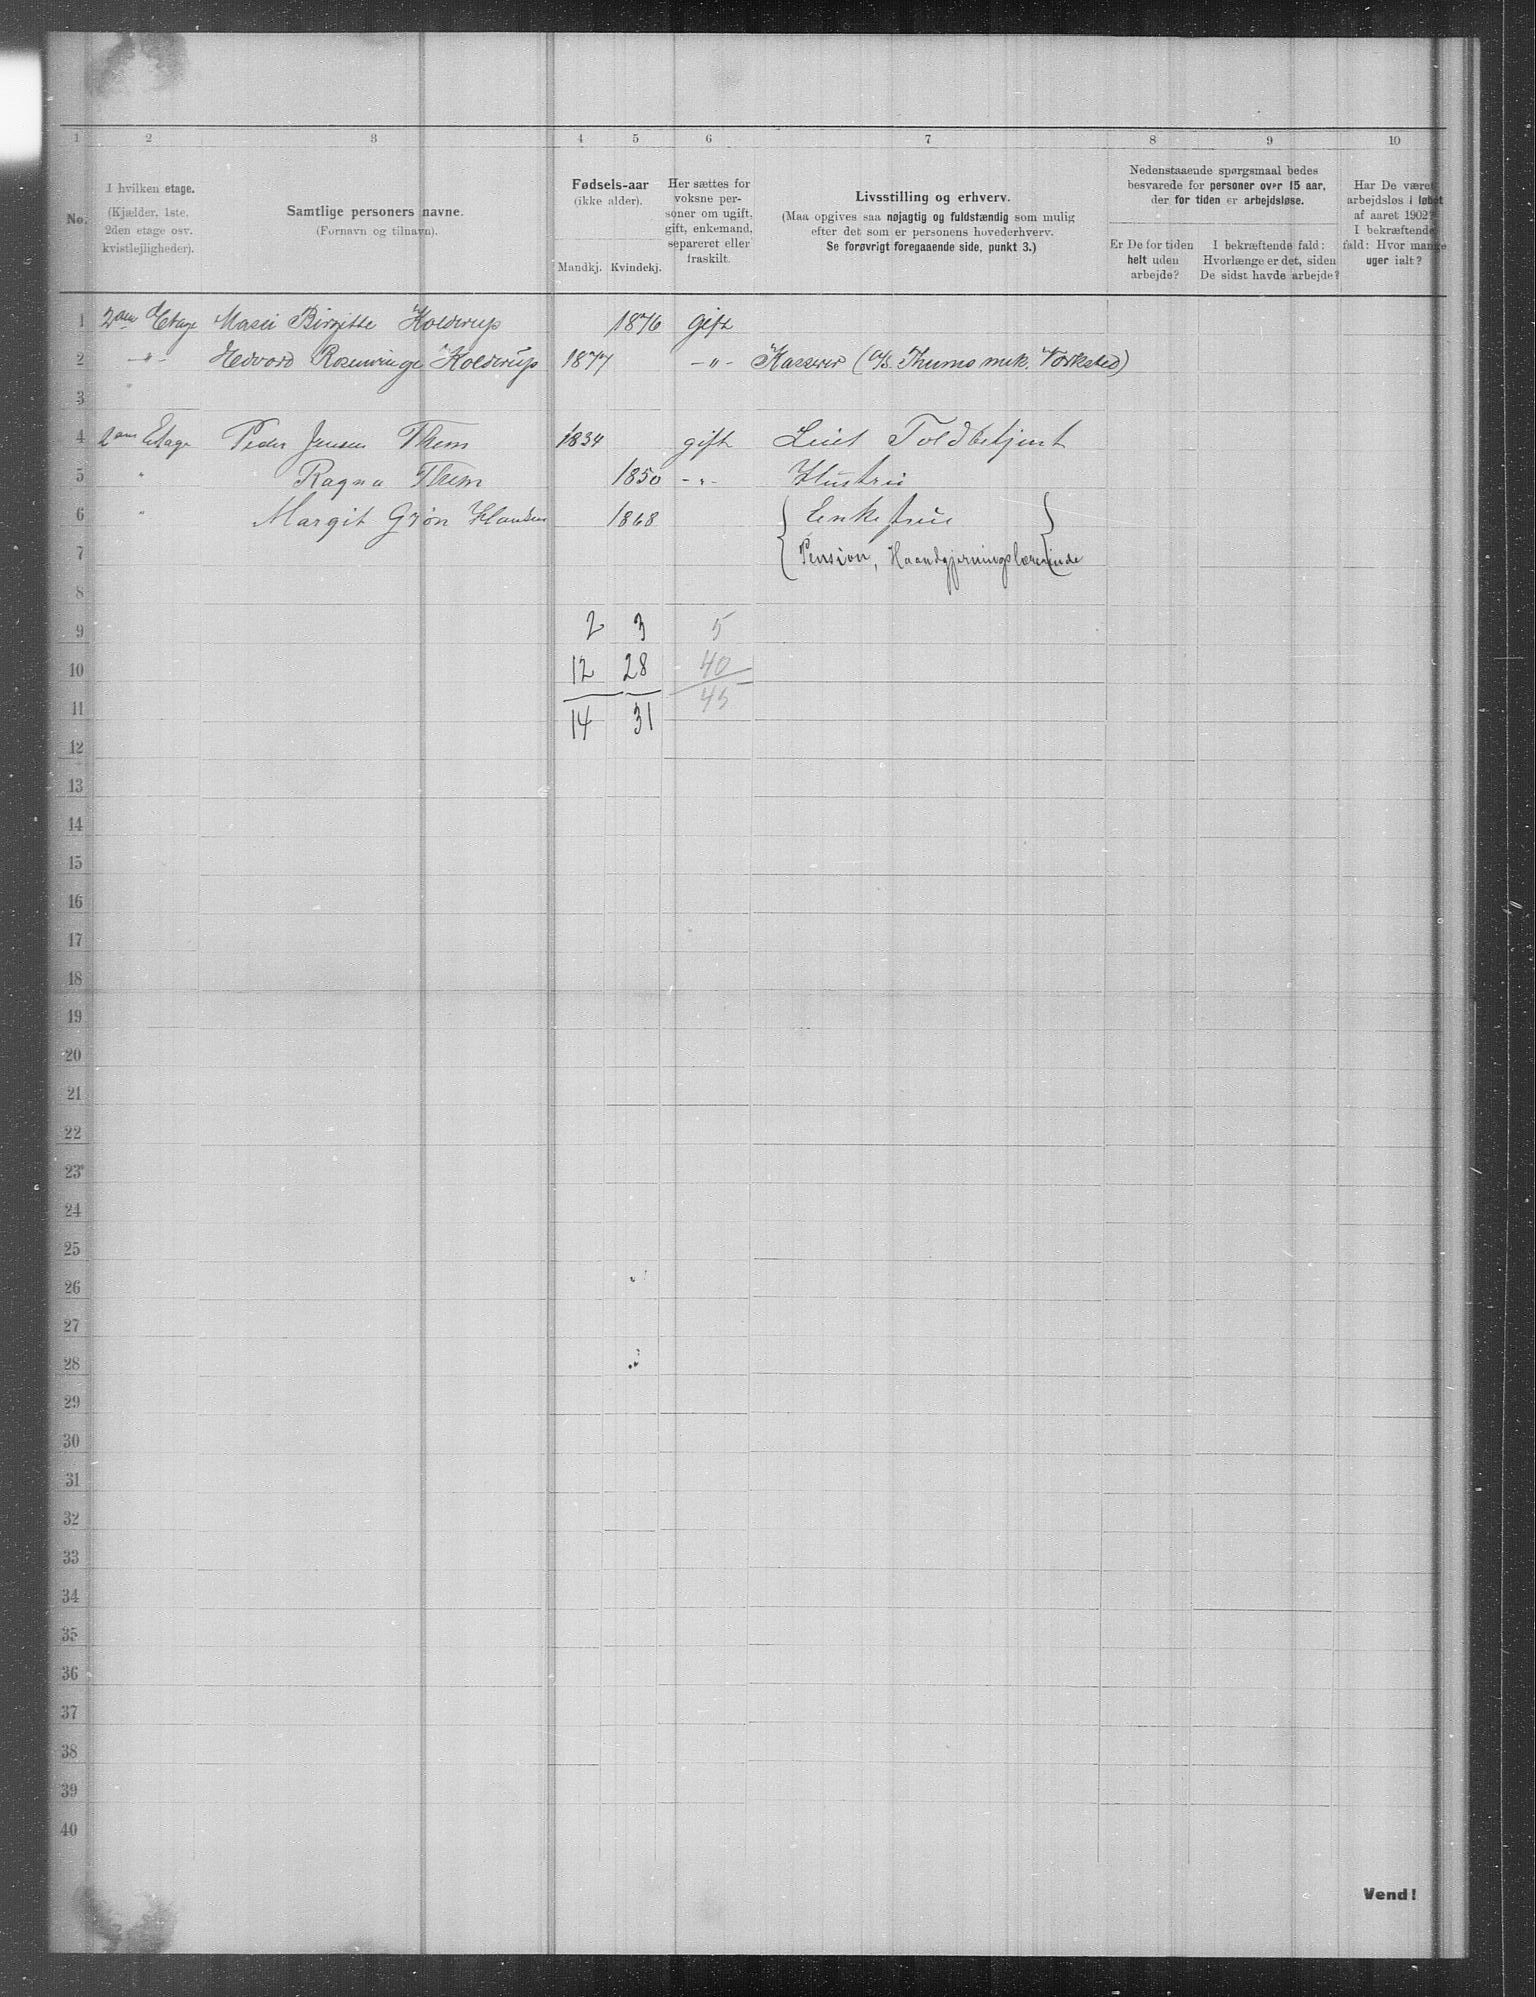 1 2 3 4 5 6 7 8 9 10
No.
I hvilken etage.
(Kjælder, 1ste,
2den etage osv.
kvistlejligheder).
Samtlige personers navne.
(Fornavn og tilnavn).
Fødsels-aar
(ikke alder).
Mandkj. Kvindekj.
Her sættes for
voksne per-
soner om ugift,
gift, enkemand,
separeret eller
fraskilt.
Livsstilling og erhverv.
(Maa opgives saa nøjagtig og fuldstændig som mulig
efter det som er personens hovederhverv.
Se forøvrigt foregaaende side, punkt 3.)
Nedenstaaende spørgsmaal bedes
besvarede for personer over 15 aar,
der for tiden er arbejdsløse.
Er De for tiden
helt uden
arbejde?
I bekræftende fald:
Hvorlænge er det, siden
De sidst havde arbejde?
Har De været
arbejdsløs i løbet
af aaret 1902?
I bekræftende
fald: Hvor mange
uger ialt?
1 2den Etage Birgitte Kolderup 1876 Gift
2 -"- Rosenvinge Kolderup 1877 -"- Kasserer (A/S. Thunes mek. Værksted)
3
4 2den Etage Peder Jensen Them 1834 gift Toldbetjent
5 " Ragna Them 1850 -"- Hustru
6 " Margit Grøn Hansen 1868 { Enkefrue }
7 { Pension, Haandgjerningslærerinde
8
9 2 3 5
10 12 28 40
11 14 31 45
12
13
14
15
16
17
18
19
20
21
22
23
24
25
26
27
28
29
30
31
32
33
34
35
36
37
38
39
40
Vend!